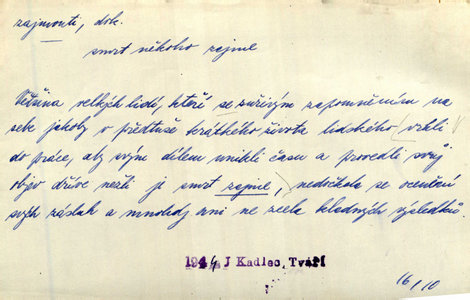 zajmouti, dok.
smrt někoho zajme
Většina velkých lidí, kteří se zuřivým zapomněním na
sebe jakoby v předtuše krátkého života lidského vrhli
do práce, aby svým dílem unikli času a provedli svůj
objev dříve nežli je smrt zajme, nedočkala se ocenění
svých zásluh a mnohdy ani ne zcela kladných výsledků
1944 J Kadlec, Tváří
16/10